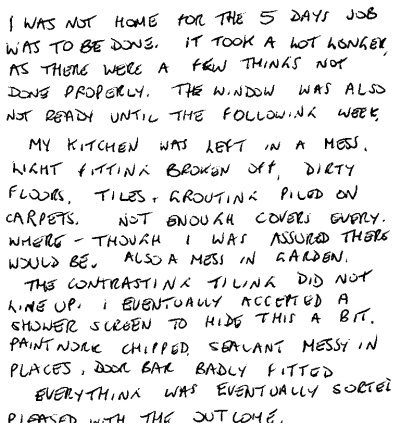 I WAS NOT HOME FOR THE 5 DAYS JOB
WAS TO BE DONE. IT TOOK A LOT LONGER,
AS THERE WERE A FEW THINGS NOT
DONE PROPERLY. THE WINDOW WAS ALSO
NOT READY UNTIL THE FOLLOWING WEEK,
MY KITCHEN WAS LEFT IN A MESS.
LIGHT FITTING BROKEN OFF, DIRTY
FLOORS, TILES + GROUTING PILED ON
CARPETS. NOT ENOUGH COVERS EVERY.
WHERE - THOUGH I WAS ASSURED THERE
WOULD BE. ALSO A MESS IN GARDEN.
THE CONTRASTING TILING DID NOT
LINE UP. I EVENTUALLY ACCEPTED A
SHOWER SCREEN TO HIDE THIS A BIT.
PAINTWORK CHIPPED, SEALANT MESSY IN
PLACES, DOOR BAR BADLY FITTED
EVERYTHING WAS EVENTUALLY SORTED
PLEASED WITH THE OUTCOME.